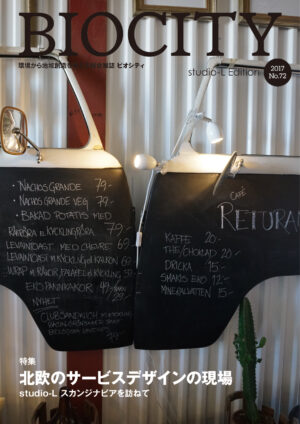 BIOCITY
環境から地域創造を
雑誌 ビオシティ
studio-L Edition
2017
No.72
• NACHOS GRANDE 79-
• NACHOS GRANDE VEG 79-
• BAKAD POTATIS MED
KYCKLINGRÖRA 79-
LEVAINTOAST MED CHEVRE 69-
LEVAINTOAST M. KYCKLING el KALKON 69-
WRAP M.
EKO PANNKAKOR 49-
NYHET
CLUBSANDWICH M KYCKLING
CAFÉ
RETURA
KAFFE 20-
THE/CHOKLAD 20-
DRICKA 15-
SMAKIS EKO 12-
MINERALVATTEN 15-
特集
北欧のサービスデザインの現場
studio-L スカンジナビアを訪ねて